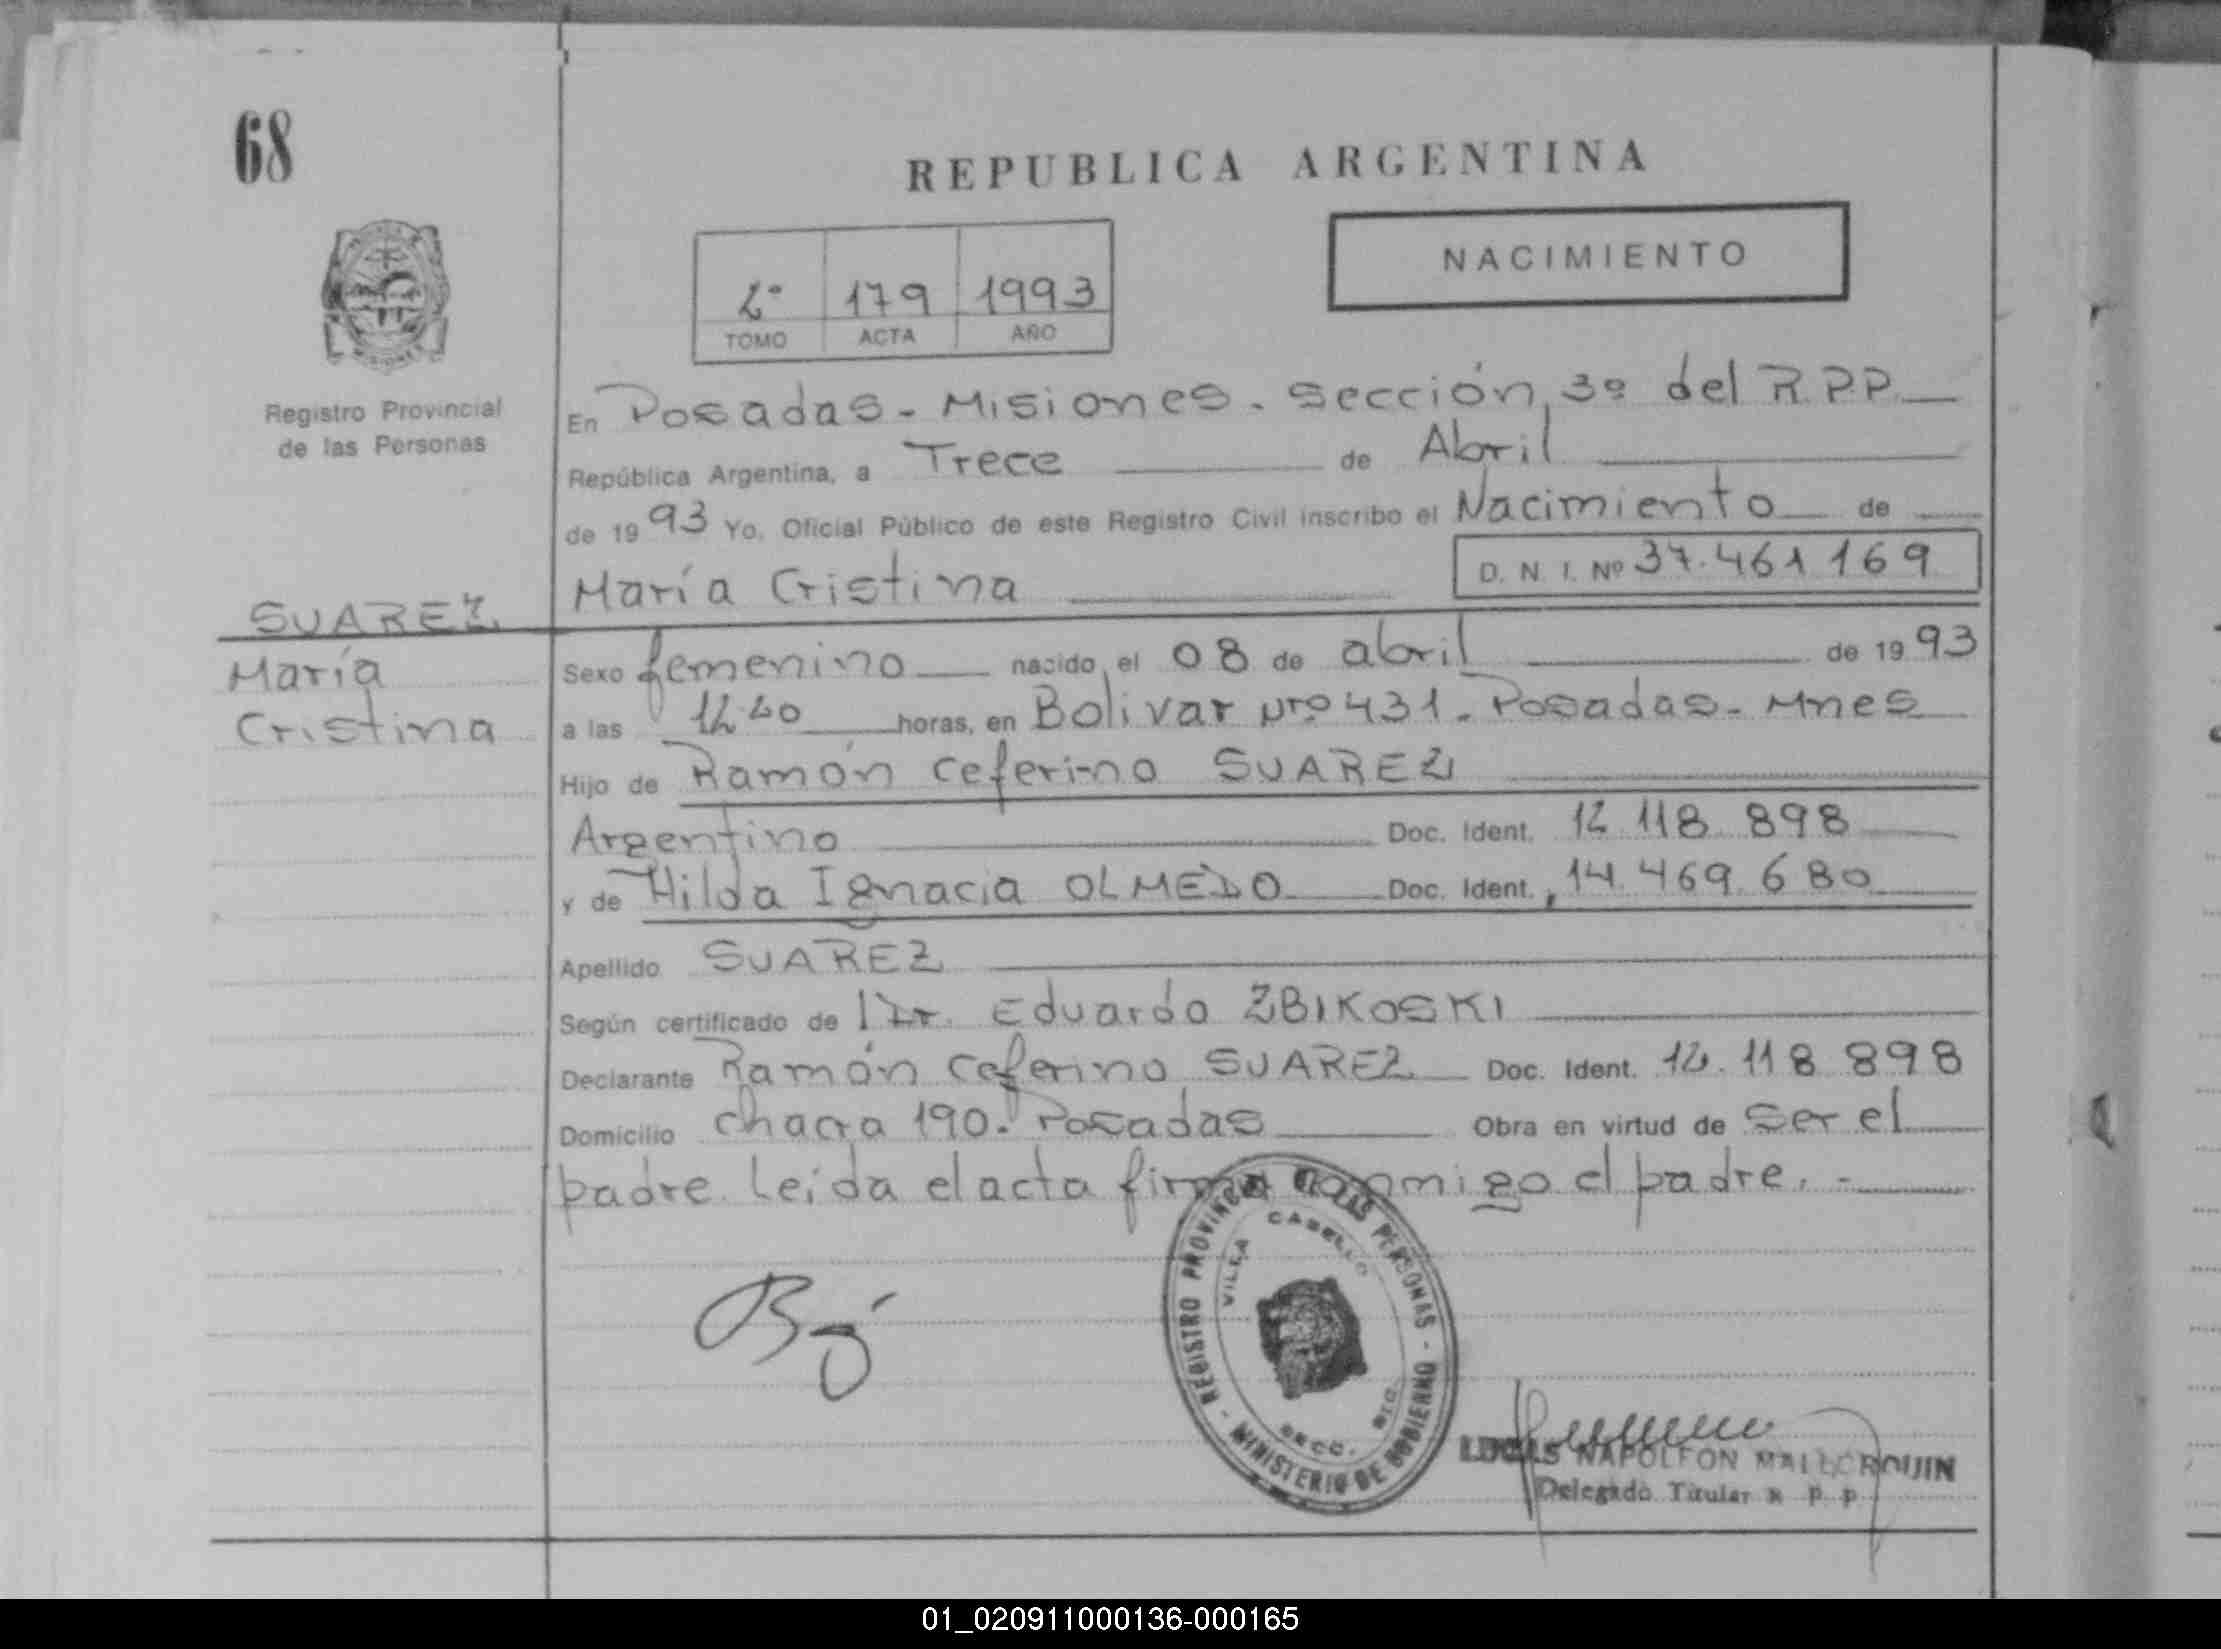 68
REPUBLICA ARGENTINA
NACIMIENTO
2º 179 1993
TOMO ACTA AÑO
Registro Provincial
de las Personas
En Posadas - Misiones - Sección 3º del R.P.P.
República Argentina, a Trece de Abril
de 1993 Yo, Oficial Público de este Registro Civil inscribo el Nacimiento de
María Cristina D. N. I. Nº 37.461 169
SUAREZ
María
Cristina
Sexo femenino nacido el 08 de abril de 1993
a las horas, en Bolivar Nrº 431. Posadas - Mnes
Hijo de Ramón Ceferino SUAREZ
Argentino Doc. Ident. 12 118 898
y de Hilda Ignacia OLMEDO Doc. Ident. 14.469.680
Apellido SUAREZ
Según certificado de Dr. Eduardo ZBIKOSKI
Declarante Ramón Ceferino SUAREZ Doc. Ident. 12.118 898
Domicilio chacra 190. Posadas Obra en virtud de ser el
padre. Leída el acta firma conmigo el padre. -
REGISTRO PROVINCIAL DE LAS PERSONAS - MINISTERIO DE GOBIERNO -
VILLA CABELLO
SECC.
LUCAS NAPOLEON MALLORQUIN
Delegado Titular R P P
01_020911000136-000165